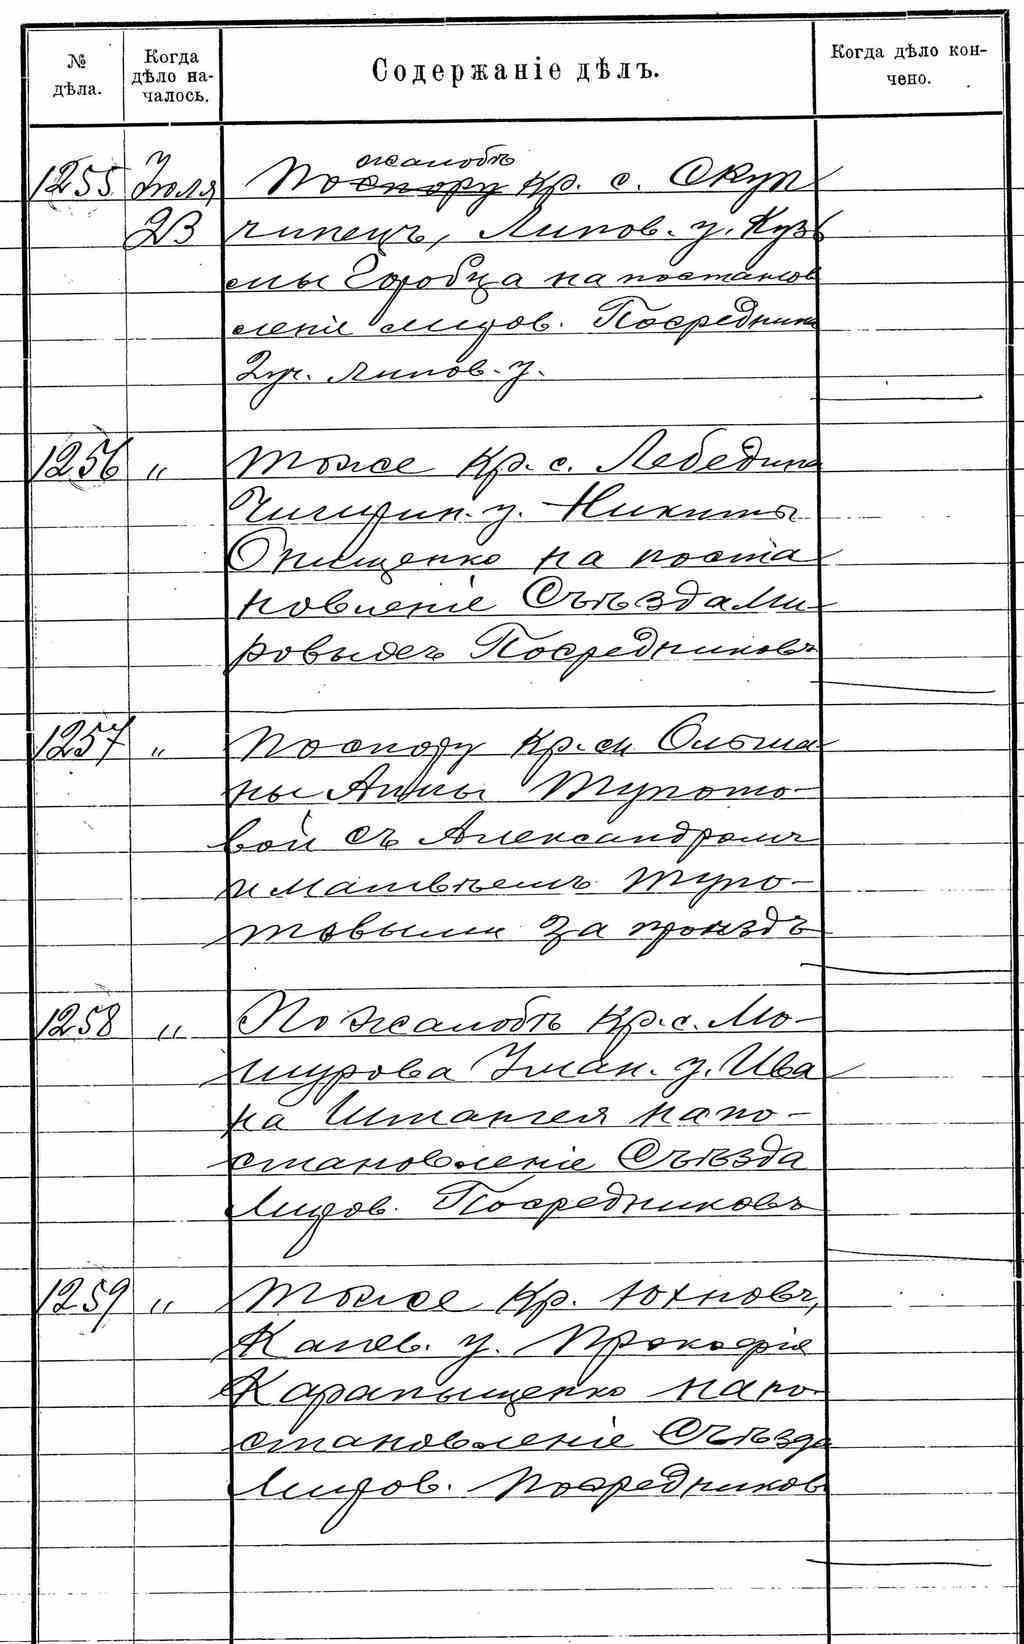 № дѣла.
Когда дѣло началось.
Содержаніе дѣлъ.
Когда дѣло кончено.
жалобѣ
1255 Іюля По спору Кр. с. Скуп
23 чинецъ, Липов. у. Кузь
мы Горобца на постанов
леніе миров. Посредника
2 уч. Липов. у.
1256 " тоже Кр. с. Лебедина
Чигирин. у. Никиты
Онищенко на поста
новленіе Съѣзда Ми-
ровыхъ Посредниковъ
1257 " по спору Кр. м. Ольша
ны Анны Тупото-
вой съ Александромъ
и Матвѣемъ Тупо-
товыми за
1258 " По жалобѣ Кр. с. Мо-
шурова Уман. у. Ива
на Штангея на по-
становленіе Съѣзда
Миров. Посредниковъ
1259 " тоже Кр. Юхновъ,
Канев. у. Прокофія
Карапыщенко на по-
становленіе Съѣзда
Миров. Посредников